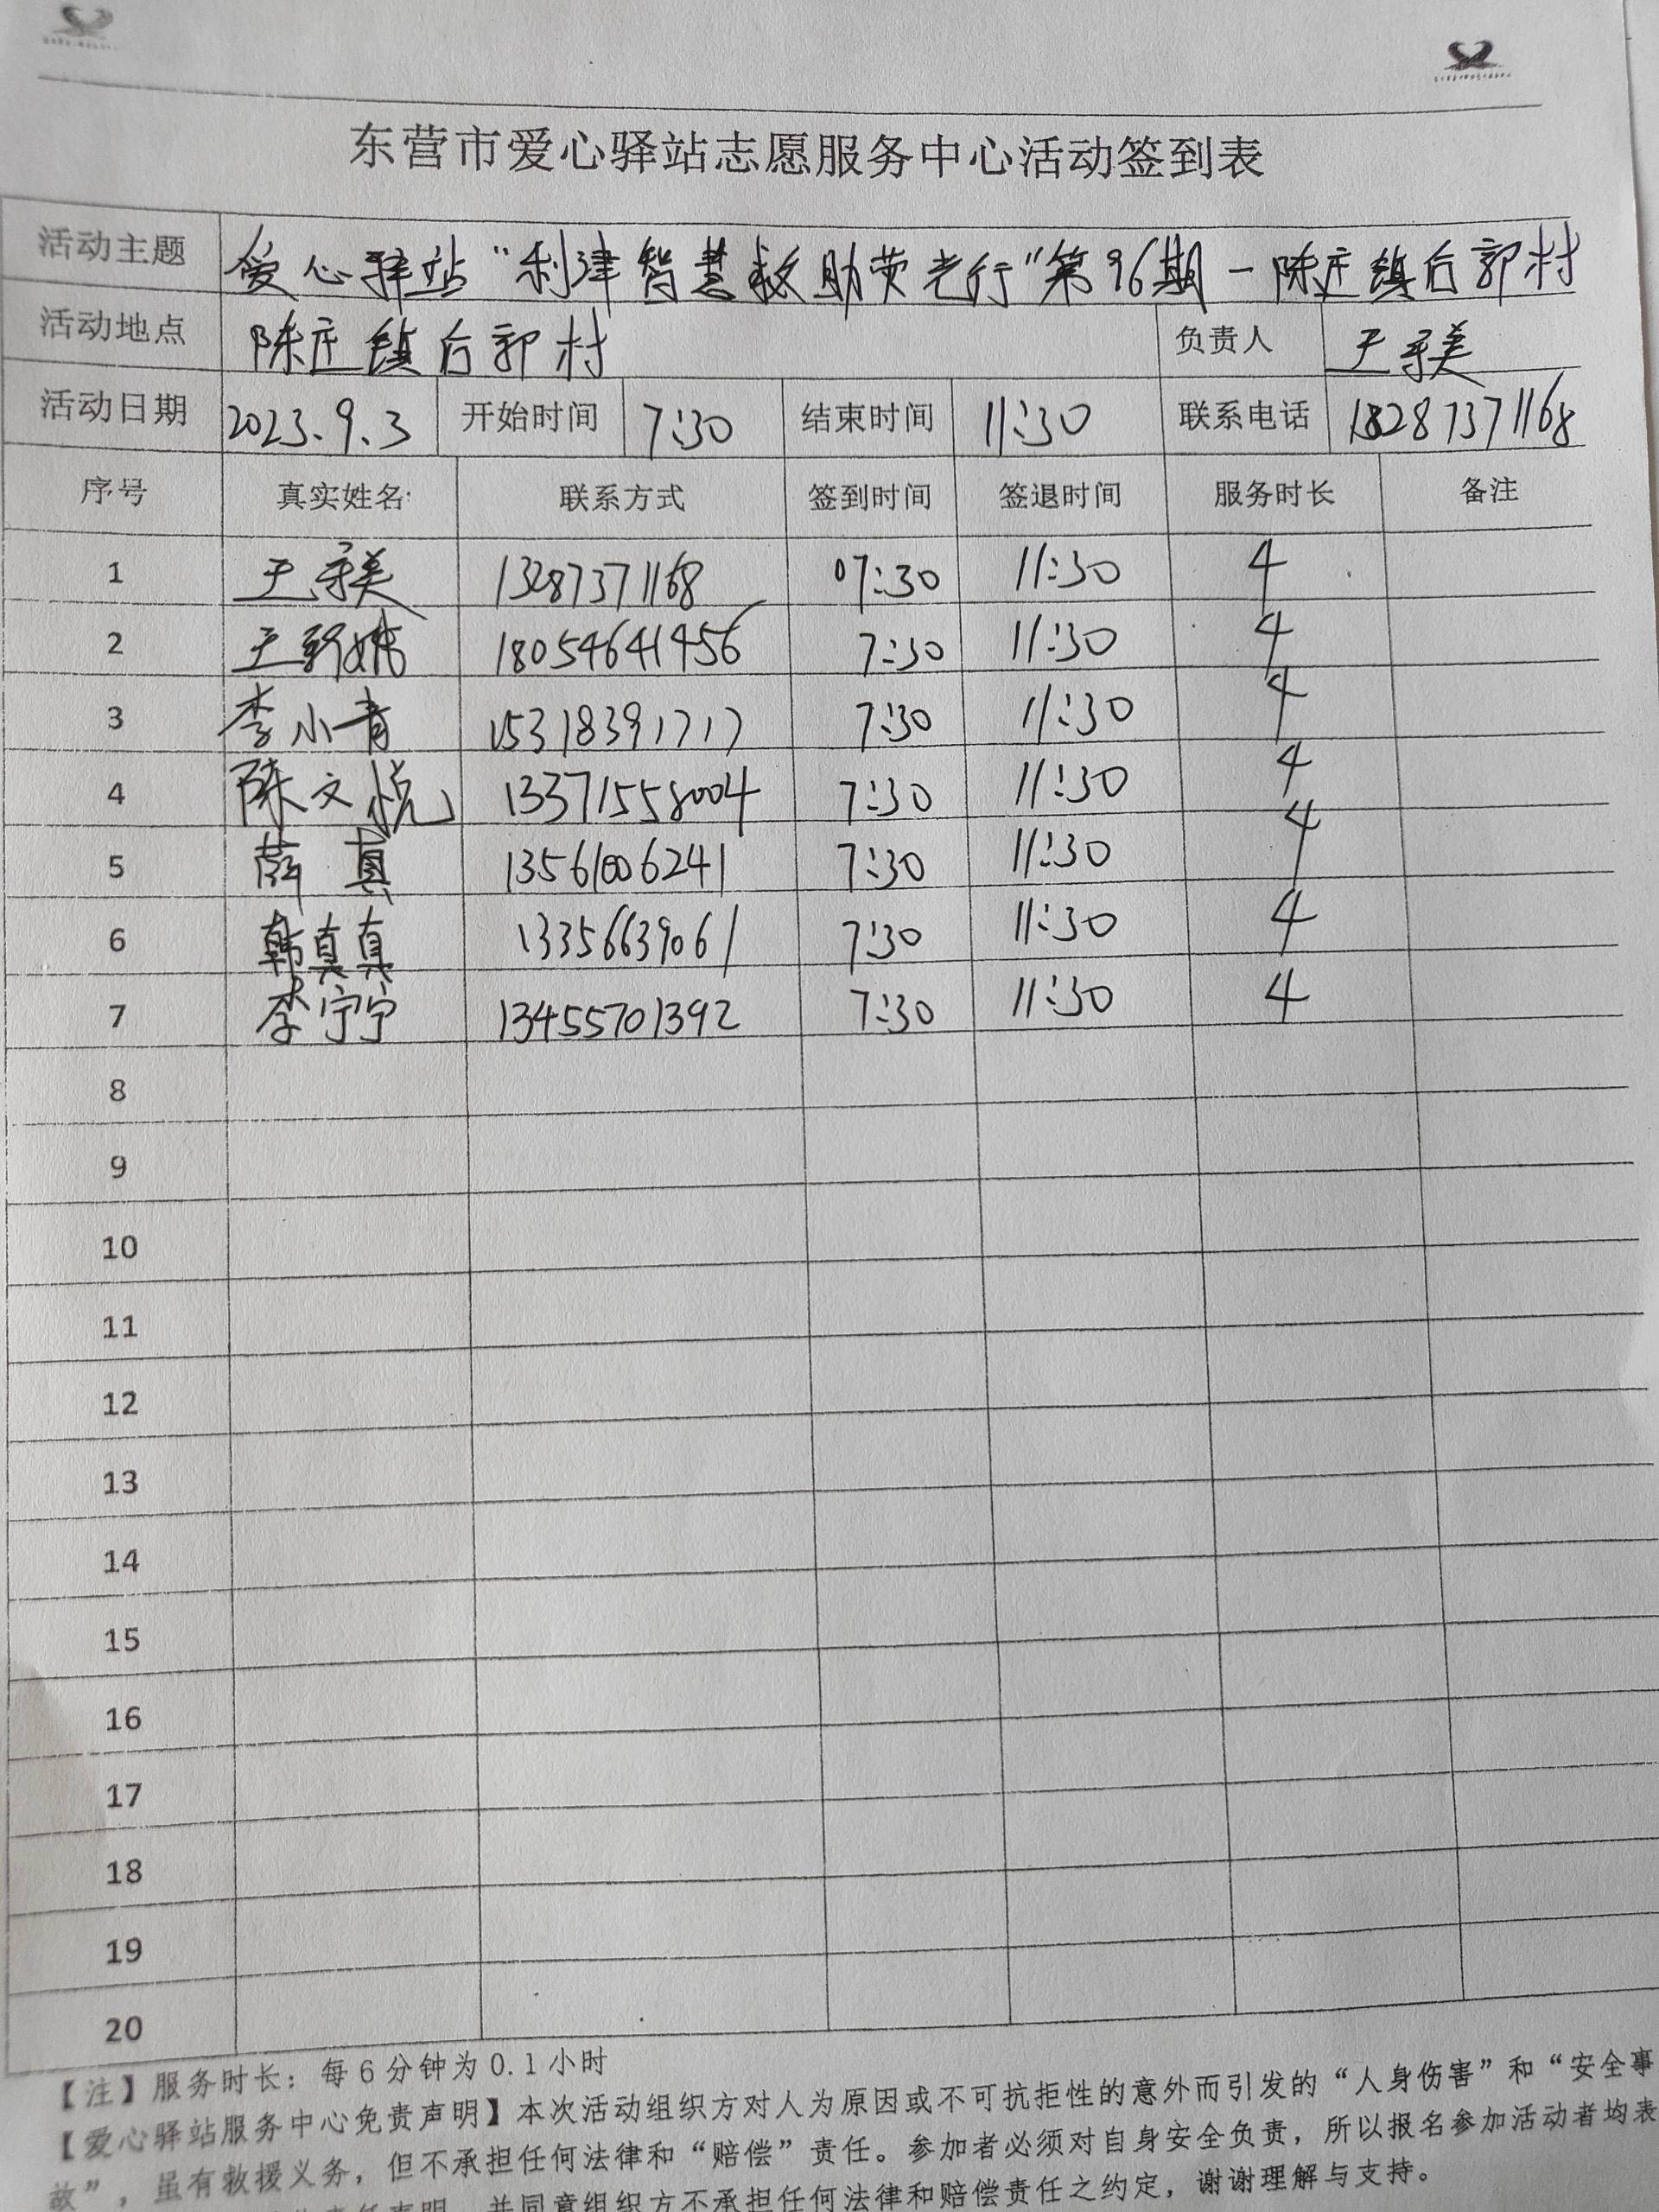 东营市爱心驿站志愿服务中心活动签到表
活动主题 爱心驿站“利津智慧救助荧光行”第96期－陈庄镇后郭村
活动地点 陈庄镇后郭村 负责人 王
活动日期 2023.9.3 开始时间 7:30 结束时间 11:30 联系电话 13287371168
序号 真实姓名 联系方式 签到时间 签退时间 服务时长 备注
1 王 13287371168 07:30 11:30 4
2 王 18054641456 7:30 11:30 4
3 李小青 15318391717 7:30 11:30 4
4 陈文悦 13371558004 7:30 11:30 4
5 薛真 13561006241 7:30 11:30 4
6 韩真真 13356639061 7:30 11:30 4
7 李宁宁 13455701392 7:30 11:30 4
8
9
10
11
12
13
14
15
16
17
18
19
20
【注】服务时长：每6分钟为0.1小时
【爱心驿站服务中心免责声明】本次活动组织方对人为原因或不可抗拒性的意外而引发的“人身伤害”和“安全事
故”，虽有救援义务，但不承担任何法律和“赔偿”责任。参加者必须对自身安全负责，所以报名参加活动者均表
责任声明，并同意组织方不承担任何法律和赔偿责任之约定，谢谢理解与支持。